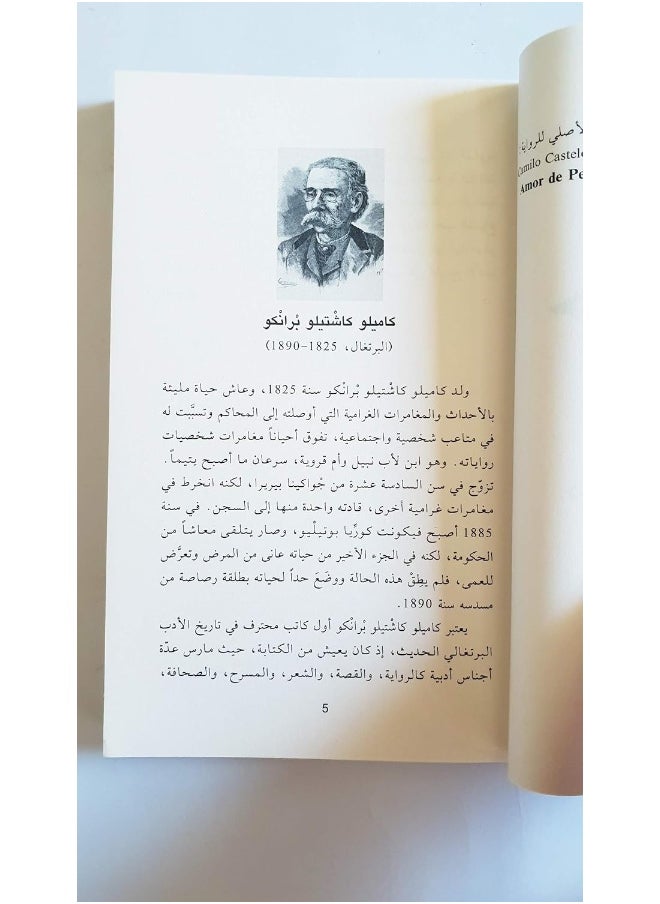 كاميلو كاشْتيلو بْرانْكو
(البرتغال، 1825-1890)
ولد كاميلو كاشْتيلو بْرانْكو سنة 1825، وعاش حياة مليئة
بالأحداث والمغامرات الغرامية التي أوصلته إلى المحاكم وتسبَّبت له
في متاعب شخصية واجتماعية، تفوق أحياناً مغامرات شخصيات
رواياته. وهو ابن لأب نبيل وأم قروية، سرعان ما أصبح يتيماً.
تزوّج في سن السادسة عشرة من جْواكينا بيريرا، لكنه انخرط في
مغامرات غرامية أخرى، قادته واحدة منها إلى السجن. في سنة
1885 أصبح فيكونت كورّيا بوتيلْيو، وصار يتلقى معاشاً من
الحكومة، لكنه في الجزء الأخير من حياته عانى من المرض وتعرَّض
للعمى، فلم يطِقْ هذه الحالة ووضَعَ حداً لحياته بطلقة رصاصة من
مسدسه سنة 1890.
يعتبر كاميلو كاشْتيلو بْرانْكو أول كاتب محترف في تاريخ الأدب
البرتغالي الحديث، إذ كان يعيش من الكتابة، حيث مارس عدّة
أجناس أدبية كالرواية، والقصة، والشعر، والمسرح، والصحافة،
5
للرواية:
Camilo
Amor de